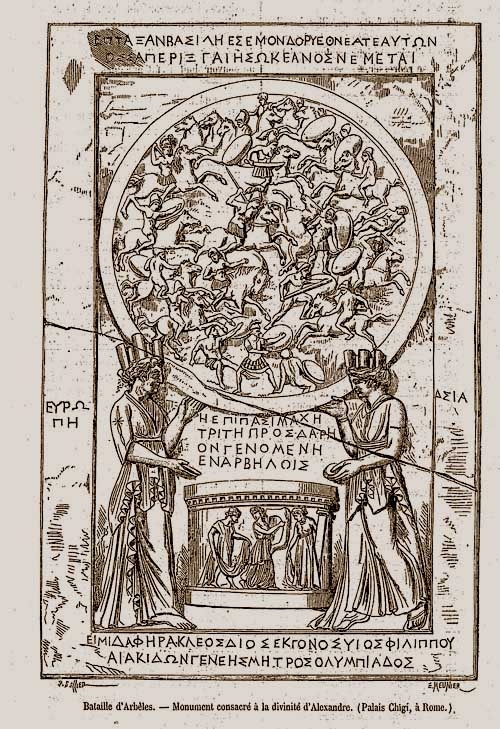 ΕΠΤΑΞΑΝΒΑΣΙΛΗΕΣΕΜΟΝΔΟΡΥΕΘΝΕΑΤΕΑΥΤΩΝ
ΣΑΠΕΡΙΞΓΑΙΗΣΩΚΕΑΝΟΣΝΕΜΕΤΑΙ
ΕΥΡΩ
ΠΗ
ΑΣΙΑ
ΗΕΠΙΠΑΣΙΜΑΧΗ
ΤΡΙΤΗΠΡΟΣΔΑΡΗ
ΟΝΓΕΝΟΜΕΝΗ
ΕΝΑΡΒΗΛΟΙΣ
ΕΙΜΙΔΑΦΗΡΑΚΛΕΟΣΔΙΟΣΕΚΓΟΝΟΣΥΙΟΣΦΙΛΙΠΠΟΥ
ΑΙΑΚΙΔΩΝΓΕΝΕΗΣΜΗΤΡΟΣΟΛΥΜΠΙΑΔΟΣ
E.MEUNIER
Bataille d'Arbèles. — Monument consacré à la divinité d'Alexandre. (Palais Chigi, à Rome.)